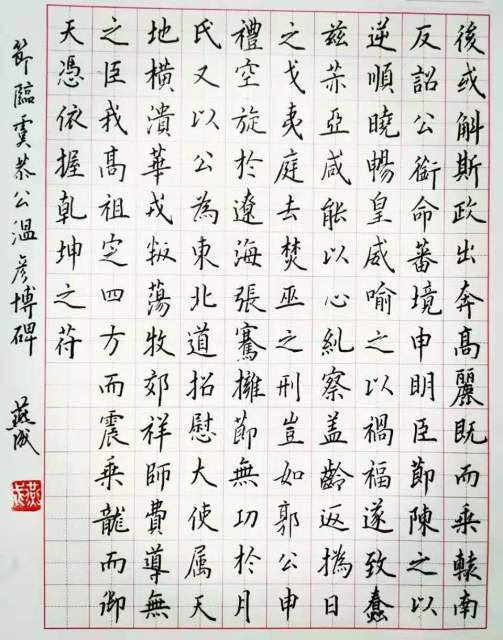 後或斛斯政出奔高麗既而乘轅南
反詔公銜命蕃境申明臣節陳之以
逆順曉暢皇威喻之以禍福遂致蠢
茲芾亞咸能以心糺察盖齡返撝日
之戈夷庭去焚巫之刑豈如郭公申
禮空旋於遼海張騫擁節無功於月
氏又以公為東北道招慰大使属天
地橫潰華戎叛蕩牧郊祥師費導無
之臣我高祖定四方而震乘龍而御
天憑依握乾坤之苻
節臨虞恭公溫彥博碑 燕成